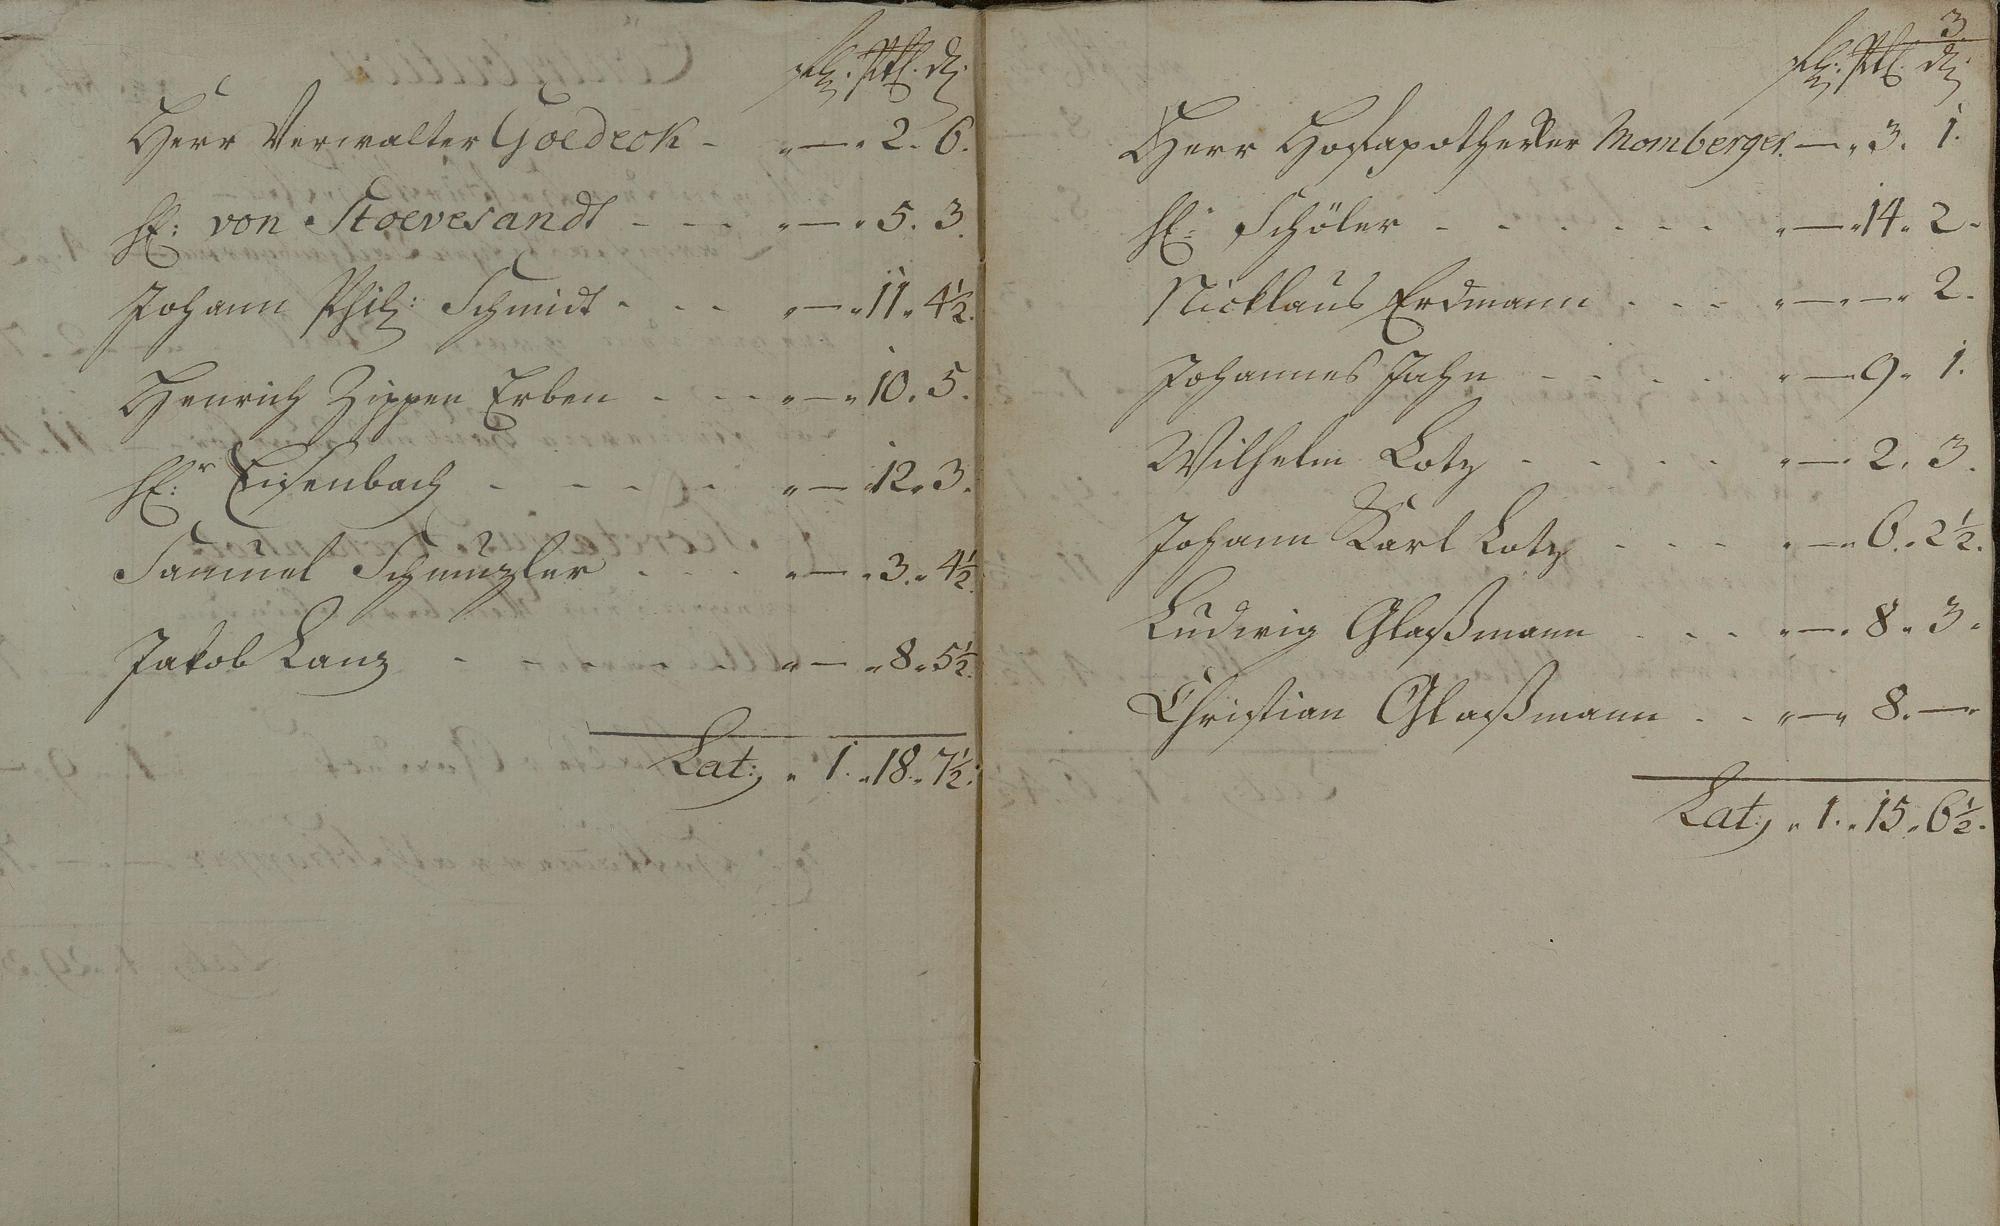 Rthlr: Alb. d.
Herr Verwalter Goedeck - „ — „ 2. 6.
H: von Stoevesandt - - - „ — „ 5. 3.
Johann Phil: Schmidt - - - „ — „ 11 „ 4½.
Henrich Zippen Erben - - - „ — „ 10. 5.
H:r Eisenbach - - - - „ — 12 „ 3.
Samuel - - - „ — „ 3. „ 4½.
Jakob Lanz - - - - - - „ — „ 8 „ 5½.
Lat: „ 1. „ 18. „ 7½.
3.
Rthlr: Alb. d.
Herr Hofapotheker Momberger. — „ 3. 1.
H: Schöler - - - - - - „ — „ 14 „ 2 -
Nicklaus Erdmann - - - „ — „ — „ 2 -
Johannes Jahn - - - - „ — 9 „ 1.
Wilhelm Lotz - - - - „ — 2. 3.
Johann Karl Lotz - - - „ — „ 6. „ 2½.
Ludwig Glaßmann - - - „ — „ 8 „ 3 -
Christian Glaßmann - - „ — „ 8. —
Lat: „ 1. „ 15 „ 6½.